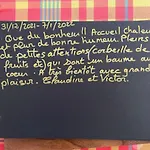 31/12/2021-7/1/2022
Que du bonheur!! Accueil chaleu
et plein de bonne humeur. Pleins
de petites attentions (corbeille de
fruits et) qui sont un baume au
cœur. A très bientôt avec grand
plaisir. Claudine et Victor.